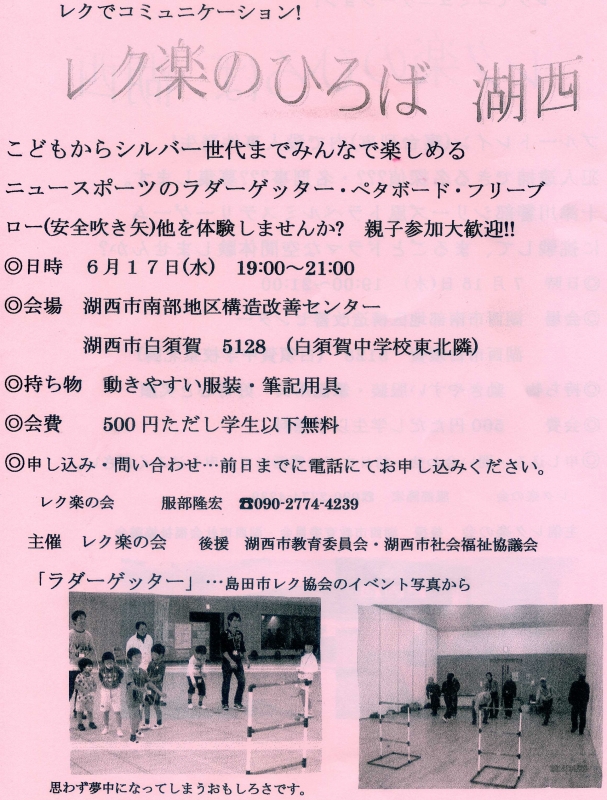 レクでコミュニケーション!
レク楽のひろば 湖西
こどもからシルバー世代までみんなで楽しめる
ニュースポーツのラダーゲッター・ペタボード・フリーブ
ロー(安全吹き矢)他を体験しませんか? 親子参加大歓迎!!
◎日時 6月17日(水) 19:00～21:00
◎会場 湖西市南部地区構造改善センター
湖西市白須賀 5128 (白須賀中学校東北隣)
◎持ち物 動きやすい服装・筆記用具
◎会費 500円ただし学生以下無料
◎申し込み・問い合わせ…前日までに電話にてお申し込みください。
レク楽の会 服部隆宏 ☎090-2774-4239
主催 レク楽の会 後援 湖西市教育委員会・湖西市社会福祉協議会
「ラダーゲッター」…島田市レク協会のイベント写真から
思わず夢中になってしまうおもしろさです。